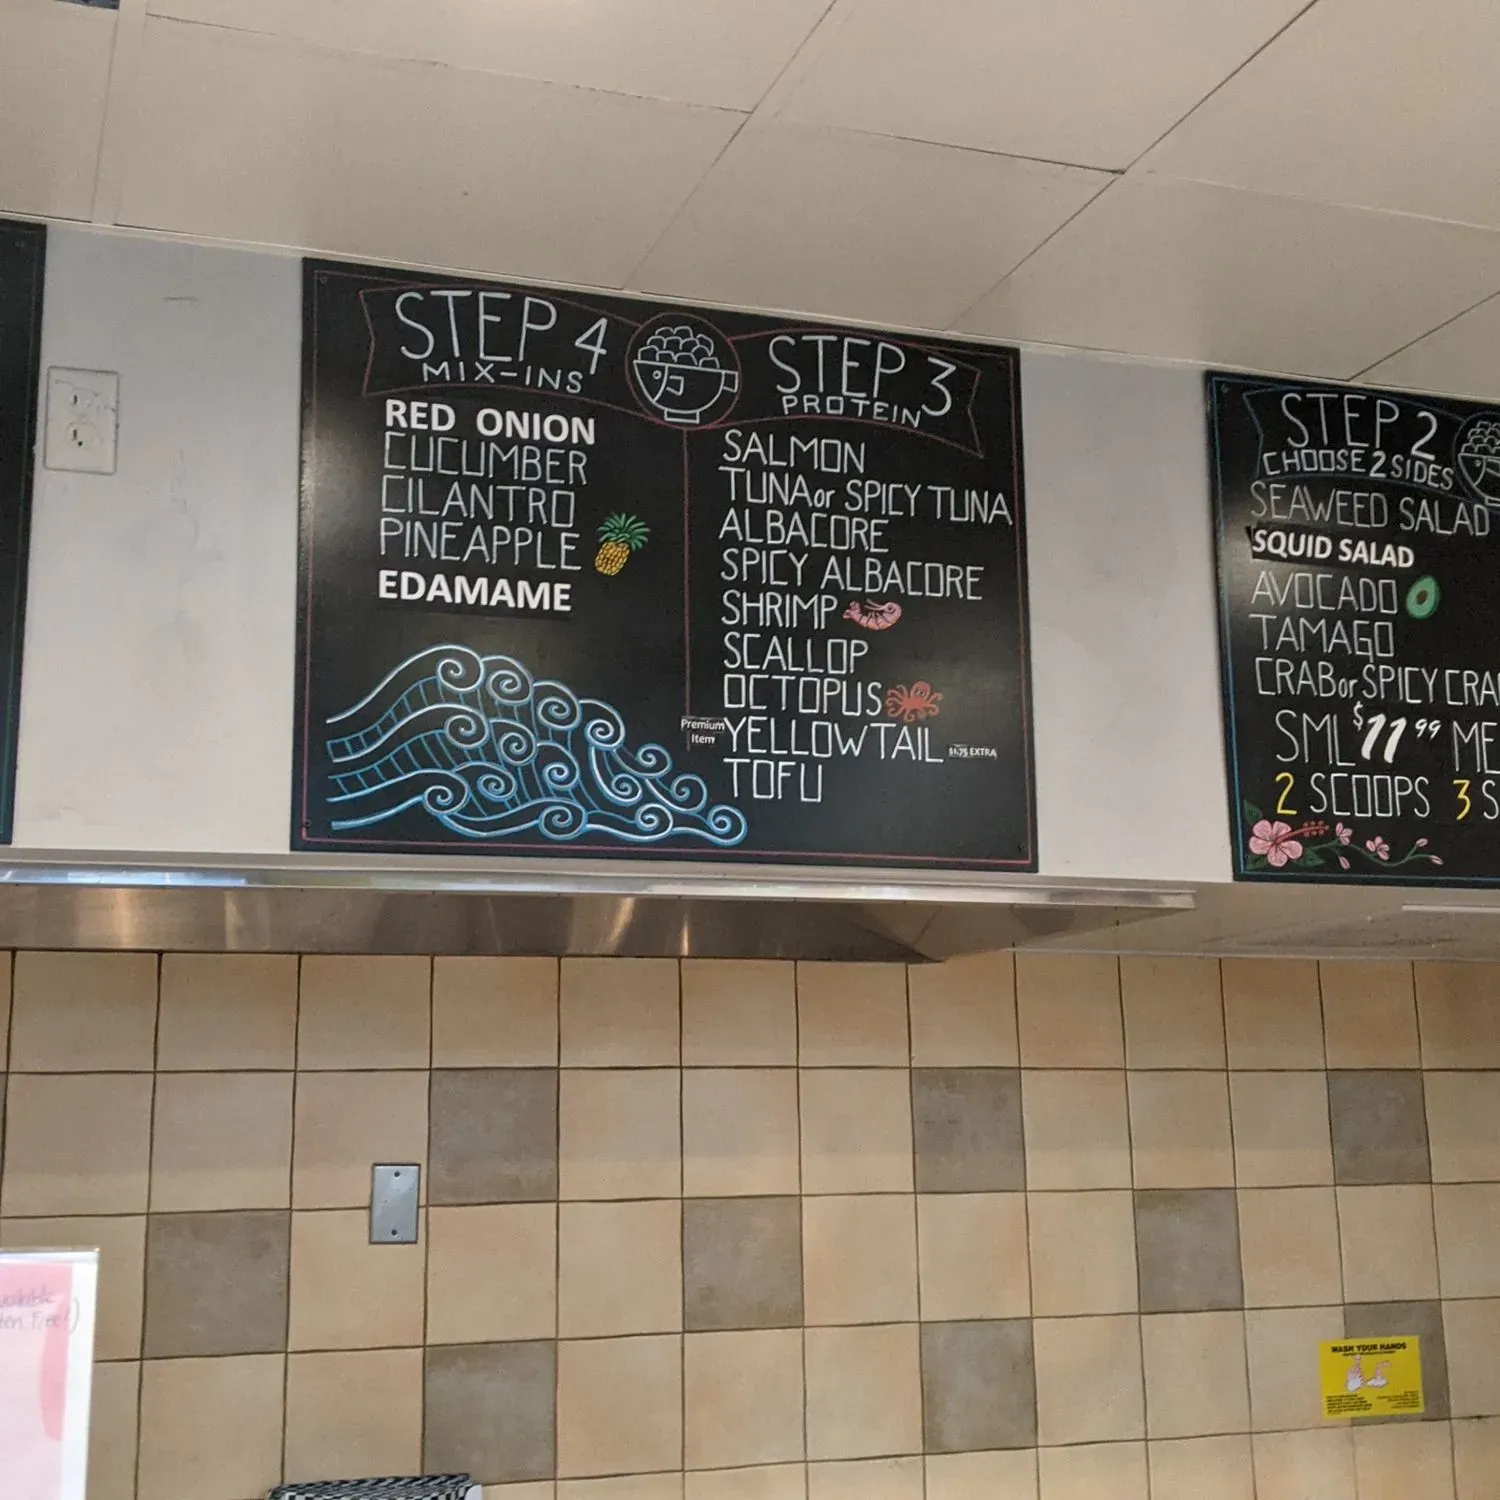 STEP 4
MIX-INS
RED ONION
CUCUMBER
CILANTRO
PINEAPPLE
EDAMAME
STEP 3
PROTEIN
SALMON
TUNA or SPICY TUNA
ALBACORE
SPICY ALBACORE
SHRIMP
SCALLOP
OCTOPUS
Premium
Item
YELLOWTAIL $1.75 EXTRA
TOFU
STEP 2
CHOOSE 2 SIDES
SEAWEED SALAD
SQUID SALAD
AVOCADO
TAMAGO
CRAB or SPICY CRA
SML $11.99 ME
2 SCOOPS 3 S
WASH YOUR HANDS
Free!)